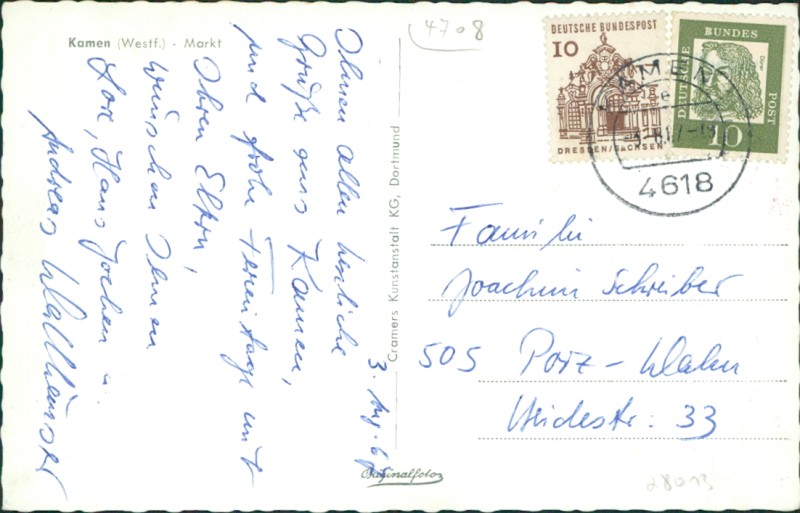 Kamen (Westf.) - Markt
4708
3. Aug. 67
Ihnen allen herzliche
Grüße aus Kamen,
und frohe Ferientage mit
Ihren Eltern,
wünschen Ihnen
Lore, Hans Jochen u.
Andreas
Cramers Kunstanstalt KG, Dortmund
Originalfoto
DEUTSCHE BUNDESPOST
10
DRESDEN/SACHSEN
DEUTSCHE BUNDESPOST
10
KAMEN
e
4618
Familie
Joachim Schreiber
505 Porz-Wahn
Heidestr. 33
28013